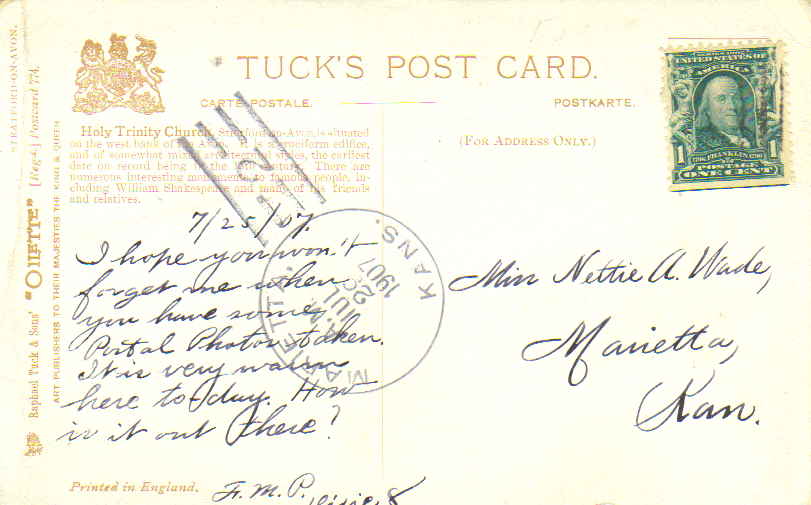 TUCK'S POST CARD.
CARTE POSTALE.
POSTKARTE.
(FOR ADDRESS ONLY.)
Holy Trinity Church, Stratford-on-Avon, is situated
on the west bank of the Avon. It is a cruciform edifice,
and of somewhat mixed architectural styles, the earliest
date on record being in the century. There are
numerous interesting monuments to famous people, in-
cluding William Shakespeare and many of his friends
and relatives.
7/25/07.
I hope you won't
forget me when
you have some
Postal Photos taken.
It is very warm
here to-day. How
is it out there?
F. M. P.
Printed in England.
Miss Nettie A. Wade,
Marietta,
Kan.
MARIETTA. KANS.
JUL
26
A.M.
1907
SERIES OF 1902
UNITED STATES OF
AMERICA
1 FRANKLIN 1
POSTAGE
ONE CENT
STRATFORD-ON-AVON.
Raphael Tuck & Sons' "OILETTE" [Regd.] Postcard 774.
ART PUBLISHERS TO THEIR MAJESTIES THE KING & QUEEN